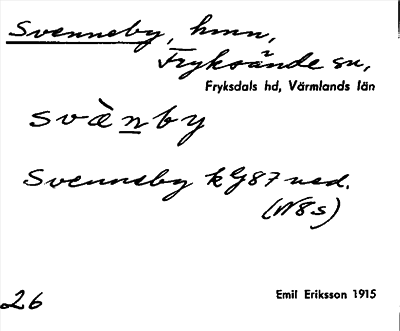 Svenneby, hmn,
Fryksände sn,
Fryksdals hd, Värmlands län
svὰnby
Svenneby kG87 nsd.
(N8s)
26
Emil Eriksson 1915